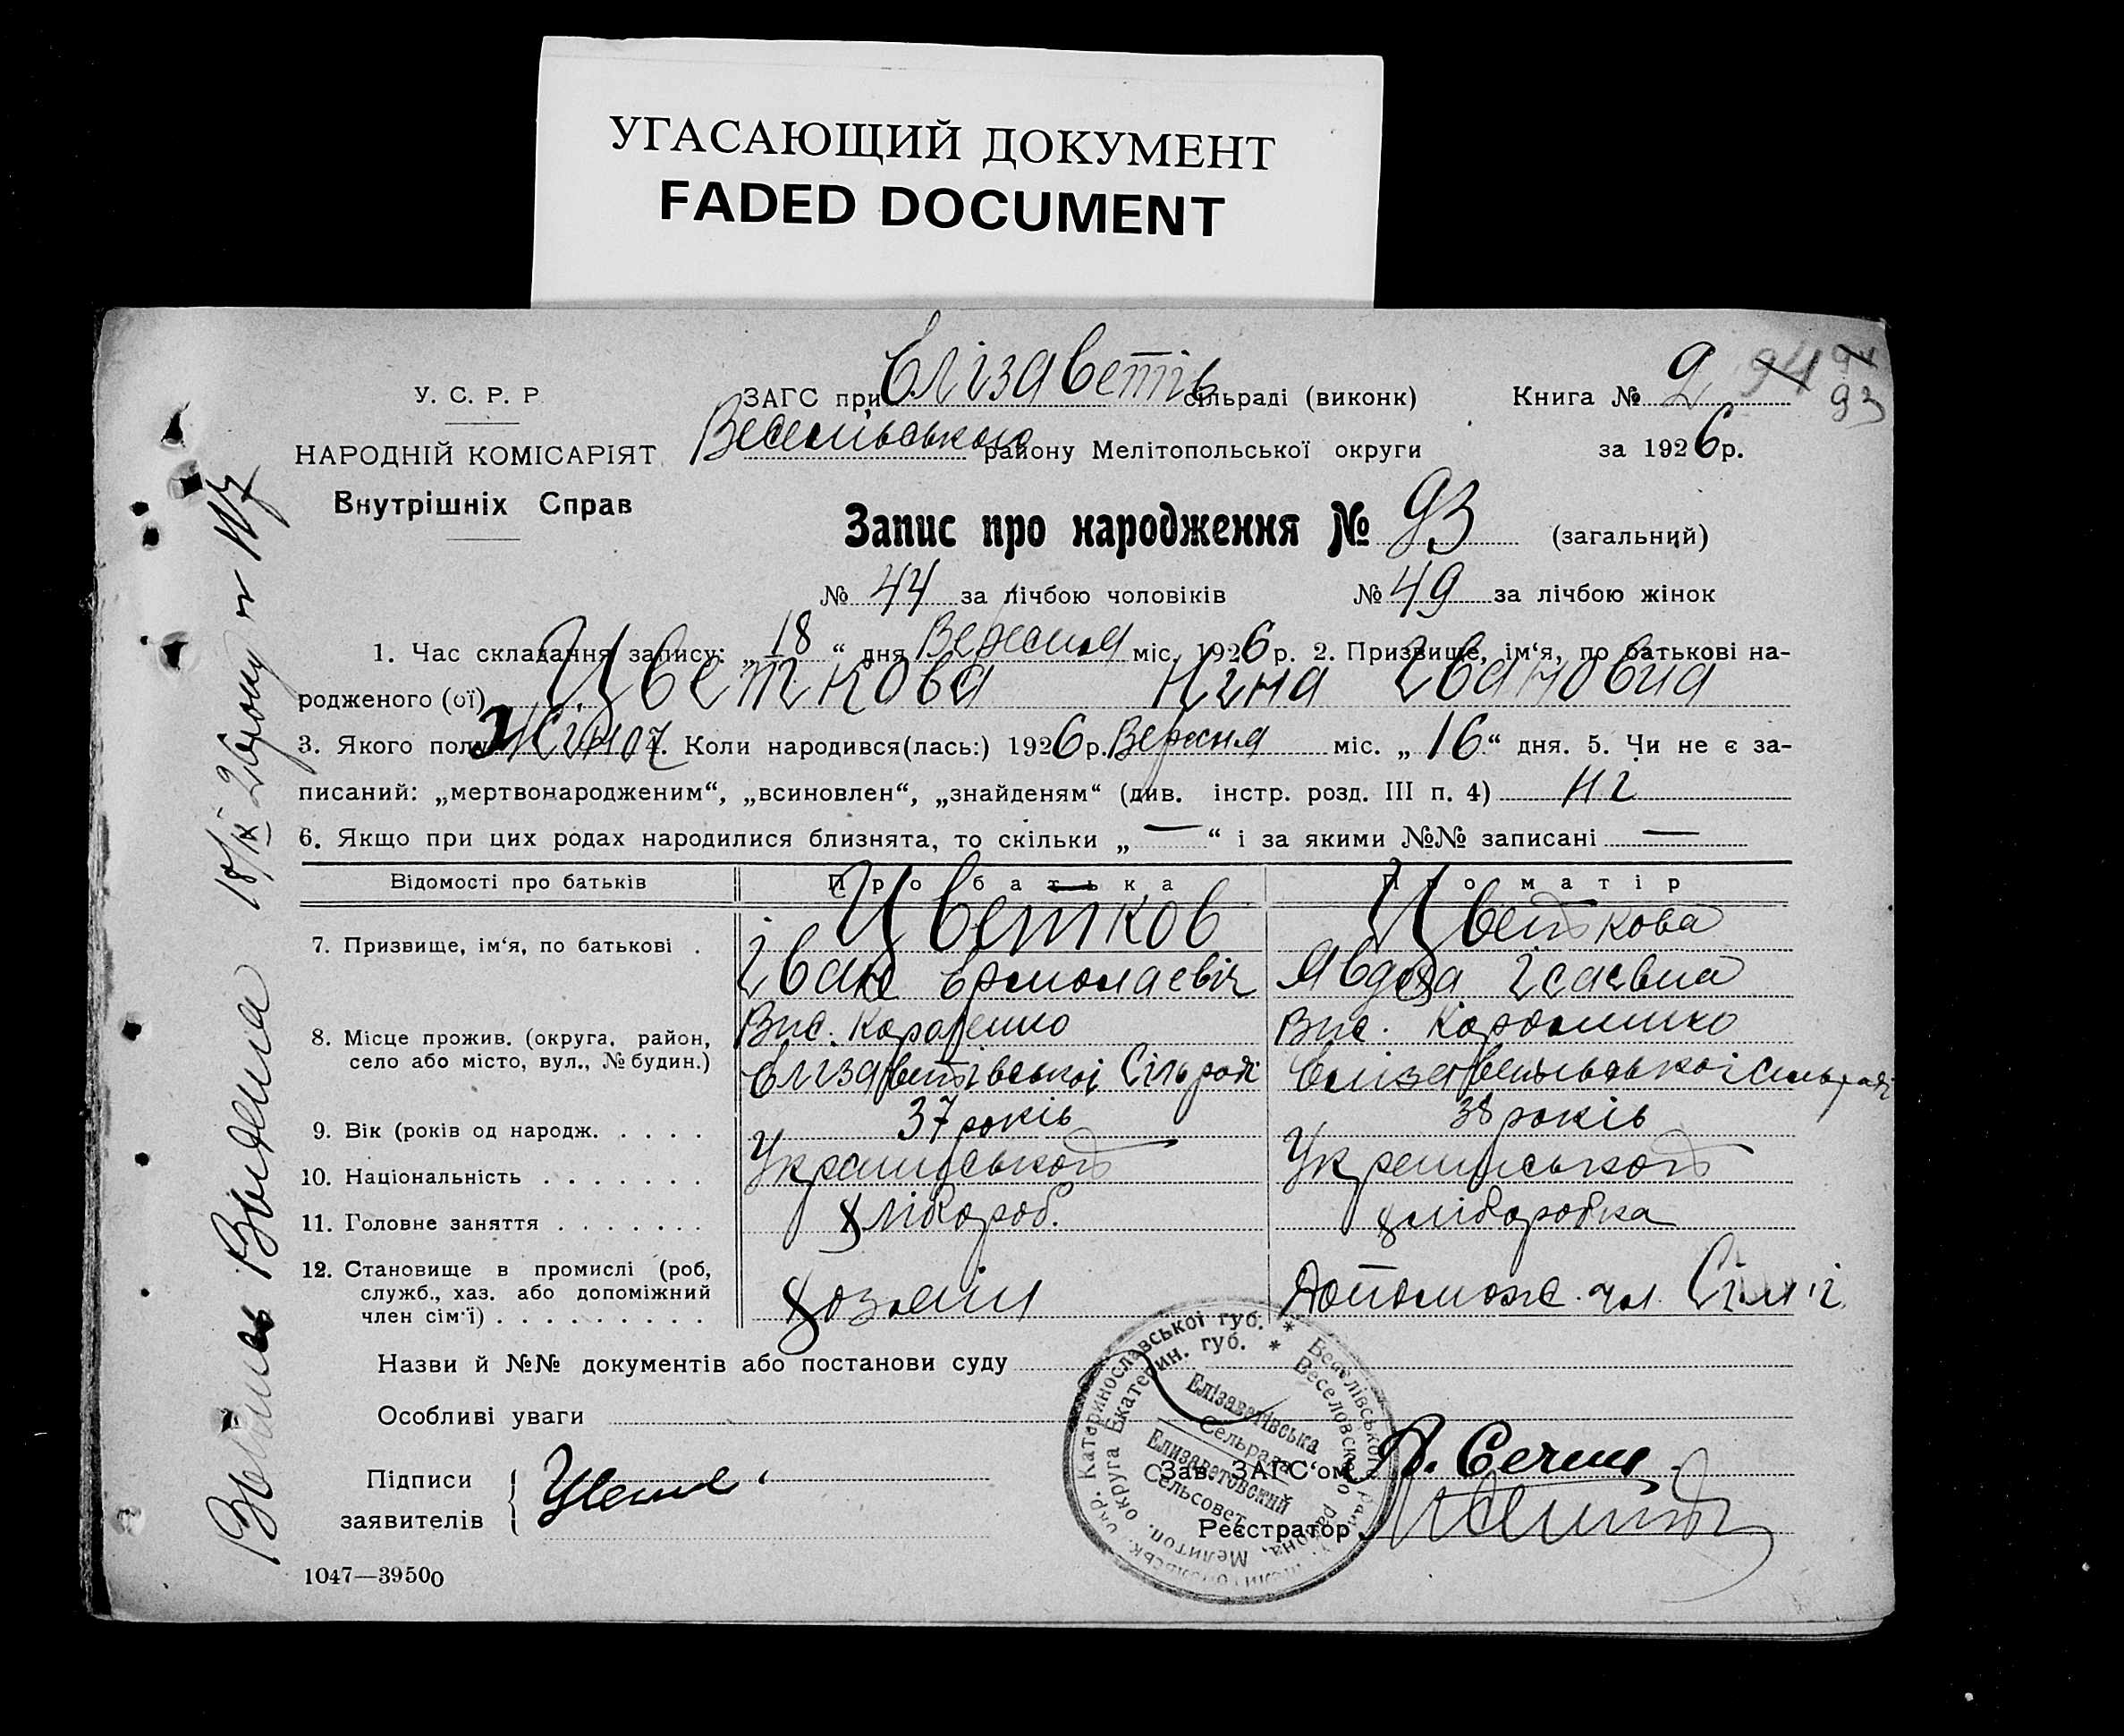 УГАСАЮЩИЙ ДОКУМЕНТ
FADED DOCUMENT
У. С. Р. Р
НАРОДНІЙ КОМІСАРІЯТ
Внутрішніх Справ
ЗАГС при Єлізаветів сільраді (виконк)
Книга № 2 94 94
93
району Мелітопольської округи
за 1926 р.
Запис про народження № 93 (загальний)
№ 44 за лічбою чоловіків № 49 за лічбою жінок
1. Час складання запису: „ 18 “ дня Вересня міс. 1926 р. 2. Призвище, ім‘я, по батькові на-
родженого (ої) Цветкова Ніна Івановна
3. Якого полу 4. Коли народився(лась:) 1926 р. Вересня міс. „ 16 “ дня. 5. Чи не є за-
писаний: „мертвонародженим“, „всиновлен“, „знайденям“ (див. інстр. розд. III п. 4) ні
6. Якщо при цих родах народилися близнята, то скільки „ — “ і за якими №№ записані —
Відомості про батьків Про батька Про матір
7. Призвище, ім‘я, по батькові . Цветков Цветкова
Іван Ермолаевіч Явдоха Ісаевна
8. Місце прожив. (округа, район,
село або місто, вул., № будин.)
Вис. Вис.
Єлізаветівської Сільраді
9. Вік (років од народж. . . . . 37 років 38 років
10. Національність . . . . . . .
11. Головне заняття . . . . . . . хлібороб. хліборобка
12. Становище в промислі (роб,
служб., хаз. або допоміжний
член сім‘ї) . . . . . . . . .
хозяін Допомож. чл. Сімʼі
Назви й №№ документів або постанови суду
Особливі уваги
Підписи
заявителів
Зав. ЗАГС‘ом
Реєстратор
Єлізаветівська
Сельрада
Елизаветовский
Сельсовет
1047—39500